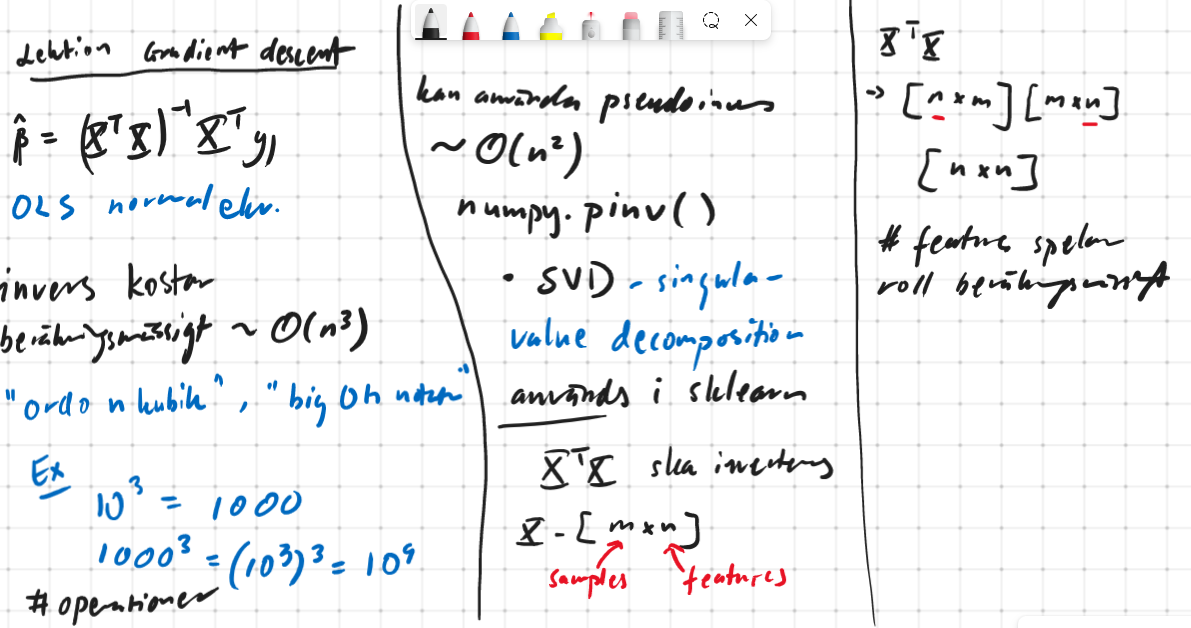 Lektion Gradient descent
β̂ = (X^T X)^-1 X^T y,
OLS normalekv.
invers kostar
beräkningsmässigt ~ O(n³)
"ordo n kubik", "big Oh notation"
Ex
10³ = 1000
1000³ = (10³)³ = 10⁹
# operationer
kan använda pseudoinvers
~ O(n²)
numpy.pinv()
• SVD - singular
value decomposition
används i sklearn
X^T X ska inverteras
X - [m x n]
samples features
X^T X
-> [n x m] [m x n]
[n x n]
# features spelar
roll beräkningsmässigt